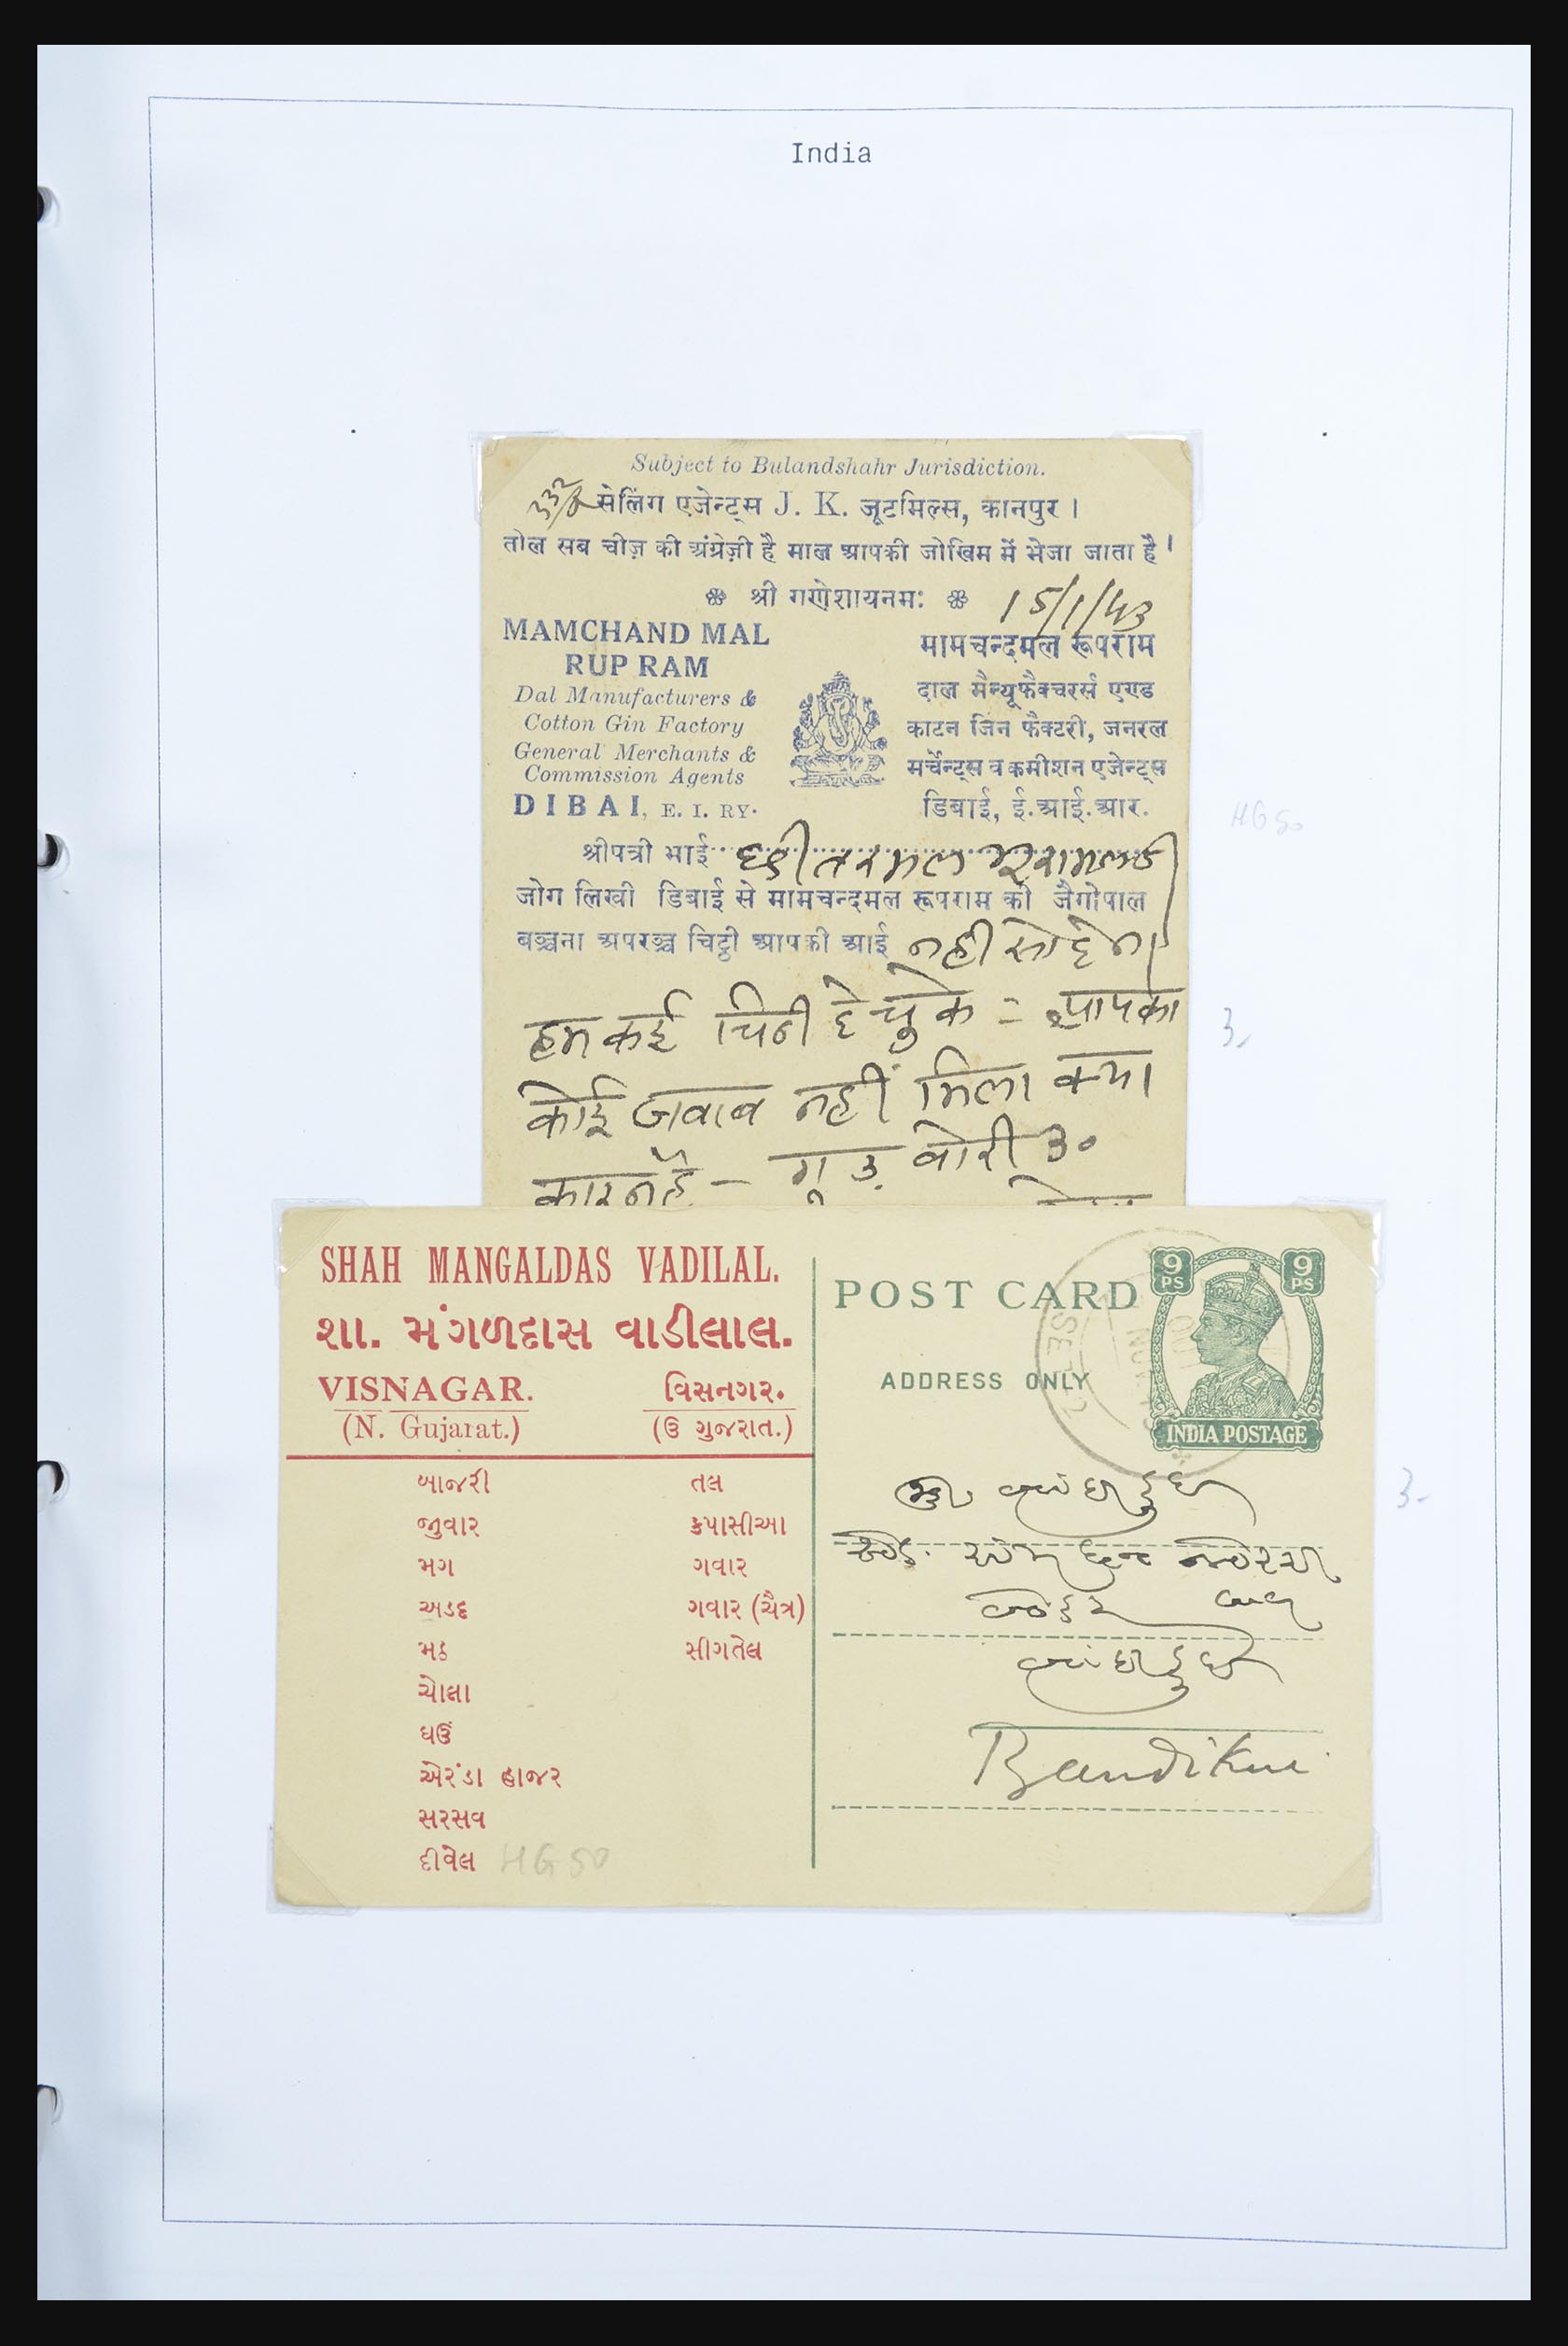 India
Subject to Bulandshahr Jurisdiction.
सेलिंग एजेन्ट्स J. K. जूटमिल्स, कानपुर ।
तोल सब चीज़ की अंग्रेज़ी है माल आपकी जोखिम में भेजा जाता है।
श्री गणेशायनमः
15/1/43
MAMCHAND MAL
RUP RAM
Dal Manufacturers &
Cotton Gin Factory
General Merchants &
Commission Agents
DIBAI, E. I. RY.
मामचन्दमल रूपराम
दाल मैन्यूफैक्चरर्स एण्ड
काटन जिन फैक्टरी, जनरल
मर्चेन्ट्स व कमीशन एजेन्ट्स
डिबाई, ई.आई.आर.
HG 50
श्रीपत्री भाई
जोग लिखी डिबाई से मामचन्दमल रूपराम की जैगोपाल
बञ्चना अपरञ्च चिट्ठी आपकी आई नहीं सो देना
हम कई चिठी दे चुके = आपका
कोई जवाब नहीं मिला क्या
कारन है - गुड़ बोरी ३०
3-
SHAH MANGALDAS VADILAL.
શા. મંગળદાસ વાડીલાલ.
VISNAGAR. વિસનગર.
(N. Gujarat.) (ઉ ગુજરાત.)
બાજરી તલ
જુવાર કપાસીઆ
મગ ગવાર
અડદ ગવાર (ચૈત્ર)
મઠ સીગતેલ
ચોળા
ઘઉં
એરંડા હાજર
સરસવ
દીવેલ HG 50
POST CARD
ADDRESS ONLY
9 PS
9 PS
INDIA POSTAGE
Bandikui
3-